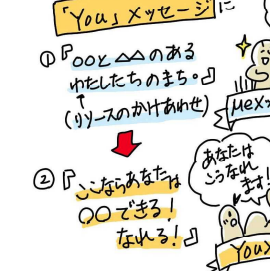 「You」メッセージに
①『○○と△△のある
わたしたちのまち。』
↑
(リソースのかけあわせ)
μeメッ
②『ここならあなたは
○○できる!
なれる!』
あなたは
こうなれ
ます!
You